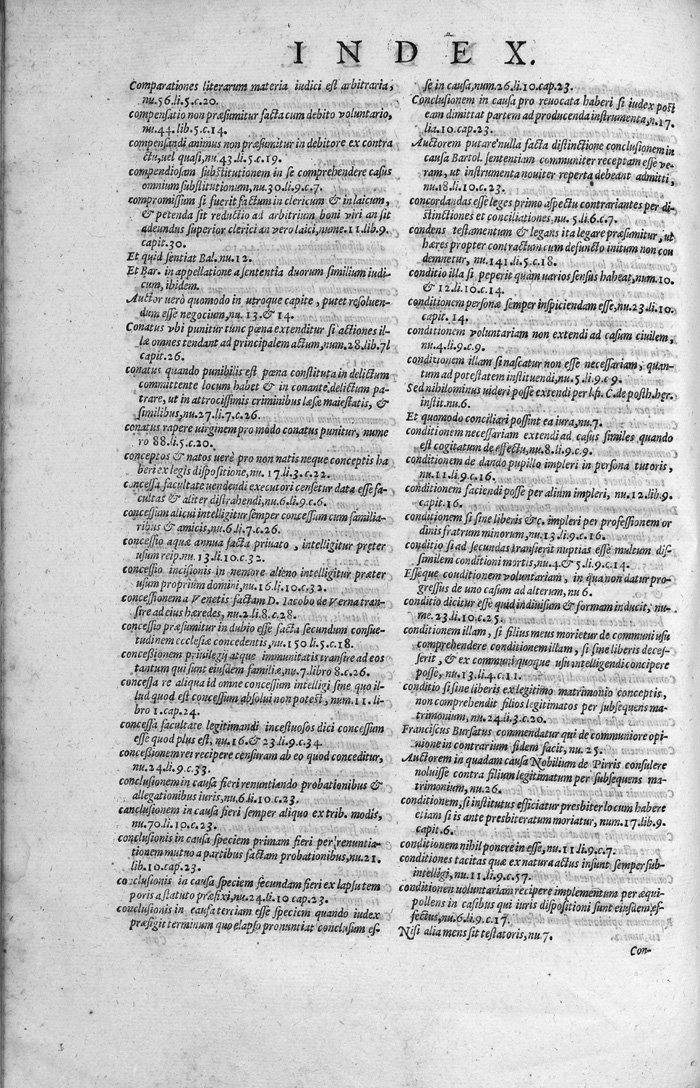 INDEX.
Comparationes literarum materia iudici est arbitraria,
nu.56.li.5.c.20.
compensatio non præsumitur facta cum debito voluntario,
nu.44.lib.5.c.14.
compensandi animus non præsumitur in debitore ex contra
ctu, vel quasi, nu.43.li.5.c.19.
compendiosam substitutionem in se comprehendere casus
omnium substitutionum, nu.30.li.9.c.7.
compromissum si fuerit factum in clericum & in laicum,
& petenda sit reductio ad arbitrium boni viri an sit
adeundus superior clerici an vero laici, nume.11.lib.9.
capit.30.
Et quid sentiat Bal. nu.12.
Et Bar. in appellatione a sententia duorum similium iudi
cum, ibidem.
Auctor uerò quomodo in utroque capite, putet resoluen-
dum esse negocium, nu.13.& 14.
Conatus vbi punitur tunc pœna extenditur si actiones il-
læ omnes tendant ad principalem actum, num.28.lib.7l
capit.26.
conatus quando punibilis est pœna constituta in delictum
committente locum habet & in conante delictum pa-
trare, ut in attrocissimis criminibus læsæ maiestatis, &
similibus, nu.27.li.7.c.26.
conatus rapere uirginem pro modo conatus punitur, nume
ro 88.li.5.c.20.
conceptos & natos uerè pro non natis neque conceptis ha
beri ex legis dispositione, nu. 17.li.3.c.22.
concessa facultate uendendi executori censetur data esse fa-
cultas & aliter distrahendi, nu.6.li.9.c.6.
concessum alicui intelligitur semper concessum cum familia-
ribus & amicis, nu.6.li.7.c.26.
concessio aquæ annua facta priuato, intelligitur preter
usum recip. nu.13.li.10.c.32.
concessio incisionis in nemore alieno intelligitur præter
usum proprium domini, nu.16.li.10.c.32.
concessionem a Venetis factam D. Iacobo de Verna tran-
sire ad eius hæredes, nu.2.li.8.c.28.
concessio præsumitur in dubio esse facta secundum consue-
tudinem ecclesiæ concedentis, nu.150.li.5.c.18.
concessionem priuilegij atque immunitatis transire ad eos
tantum qui sunt eiusdem familiæ, nu.7.libro 8.c.26.
concessa re aliqua id omne concessum intelligi sine quo il-
lud quod est concessum absolui non potest, num.11.li-
bro 1.cap.24.
concessa facultate legitimandi incestuosos dici concessum
esse quod plus est, nu.16.& 23.li.9.c.34.
concessionem rei recipere censuram ab eo quod conceditur,
nu.24.li.9.c.33.
conclusionem in causa fieri renuntiando probationibus &
allegationibus iuris, nu.6.li.10.c.23.
conclusionem in causa fieri semper aliquo ex trib. modis,
nu.70.li.10.c.23.
conclusionis in causa speciem primam fieri per renuntia-
tionem mutuo a partibus factam probationibus, nu.21.
lib.10.cap.23.
conclusionis in causa speciem secundam fieri ex lapsu tem
poris a statuto præfixi, nu.24.li.10 cap.23.
conclusionis in causa terciam esse speciem quando iudex
præfigit terminum quo elapso pronuntiat conclusum es-
se in causa, num.26.li.10.cap.23.
Conclusionem in causa pro reuocata haberi si iudex post
eam dimittat partem ad producenda instrumenta, n.17.
lia.10.cap.23.
Auctorem putare nulla facta distinctione conclusionem in
causa Bartol. sententiam communiter receptam esse ve-
ram, ut instrumenta nouiter reperta debeant admitti,
nu.18.li.10.c.23.
concordandas esse leges primo aspectu contrariantes per di-
stinctiones et conciliationes, nu. 5.li.6.c.7.
condens testamentum & legans ita legare præsumitur, ut
hæres propter contractu cum defuncto initum non con
demnetur, nu.141.li.5.c.18.
conditio illa si peperit quàm uarios sensus habeat, num.10.
& 12.li.10.c.14.
conditionem personæ semper inspiciendam esse, nu.23.li.10.
capit. 14.
conditionem voluntariam non extendi ad casum ciuilem,
nu.4.li.9.c.9.
conditionem illam si nascatur non esse necessariam, quan-
tum ad potestatem instituendi, nu.5.li.9.c.9.
Sed nihilominus uideri posse extendi per l.si. C. de posth. her.
instit. nu.6.
Et quomodo conciliari possint ea iura, nu.7.
conditionem necessariam extendi ad casus similes quando
est cogitatum de effectu, nu.8.li.9.c.9.
conditionem de dando pupillo impleri in persona tutoris,
nu.11.li.9.c.16.
conditionem faciendi posse per alium impleri, nu.12.lib.9.
capit.16.
conditionem si sine liberis &c. impleri per professionem or
dinis fratrum minorum, nu.13.li.9.c.16.
conditio si ad secundas transierit nuptias esse multum dis-
similem conditioni mortis, nu.4.& 5.li.9.c.14.
Esse que conditionem voluntariam, in qua non datur pro-
gressus de uno casum ad alterum, nu 6.
conditio dicitur esse quid indiuisum & formam inducit, nu-
me. 23.li.10.c.25.
conditionem illam, si filius meus morietur de communi usu
comprehendere conditionem illam, si sine liberis deces-
serit, & ex communi quoque usu intelligendi concipere
posse, nu.13.li.4.c.11.
conditio si sine liberis ex legitimo matrimonio conceptis,
non comprehendit filios legitimatos per subsequens ma-
trimonium, nu.24.li.3.c.20.
Franciscus Bursatus commendatur qui de communiore opi-
nione in contrarium fidem facit, nu. 25.
Auctorem in quadam causa Nobilium de Pirris consulere
noluisse contra filium legitimatum per subsequens ma-
trimonium, nu.26.
conditionem, si institutus efficiatur presbiter locum habere
etiam si is ante presbiteratum moriatur, num.17.lib.9.
capit.6.
conditionem nihil ponere in esse, nu.11.li.9.c.7.
conditiones tacitas que ex natura actus insunt semper sub-
intelligi, nu.11.li.9.c.57.
conditionem uoluntariam recipere implementum per æqui-
pollens in casibus qui iuris dispositioni sunt eiusdem ef-
fectus, nu.6.li.9.c.17.
Nisi alia mens sit testatoris, nu.7.
Con-